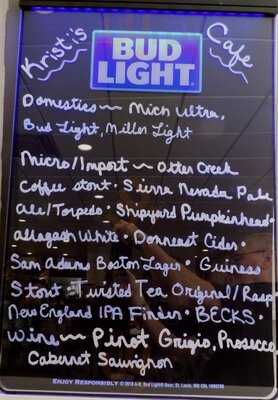 Kristi's Cafe
BUD
LIGHT
Domestics ~ Mich Ultra,
Bud Light, Miller Light
Micro/Import ~ Otter Creek
Coffee stout • Sierra Nevada Pale
Ale/Torpedo • Shipyard Pumpkinhead •
allagash White • Downeast Cider •
Sam Adams Boston Lager • Guiness
Stout • Twisted Tea Original/Rasp
New England IPA Finder • BECKS •
Wine ~ Pinot Grigio, Prosecco
Cabernet Sauvignon
ENJOY RESPONSIBLY